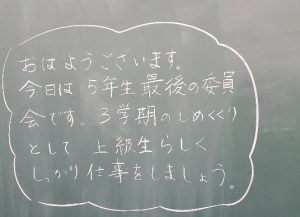 おはようございます。
今日は 5年生最後の委員
会です。3学期のしめくくり
として 上級生らしく
しっかり仕事をしましょう。